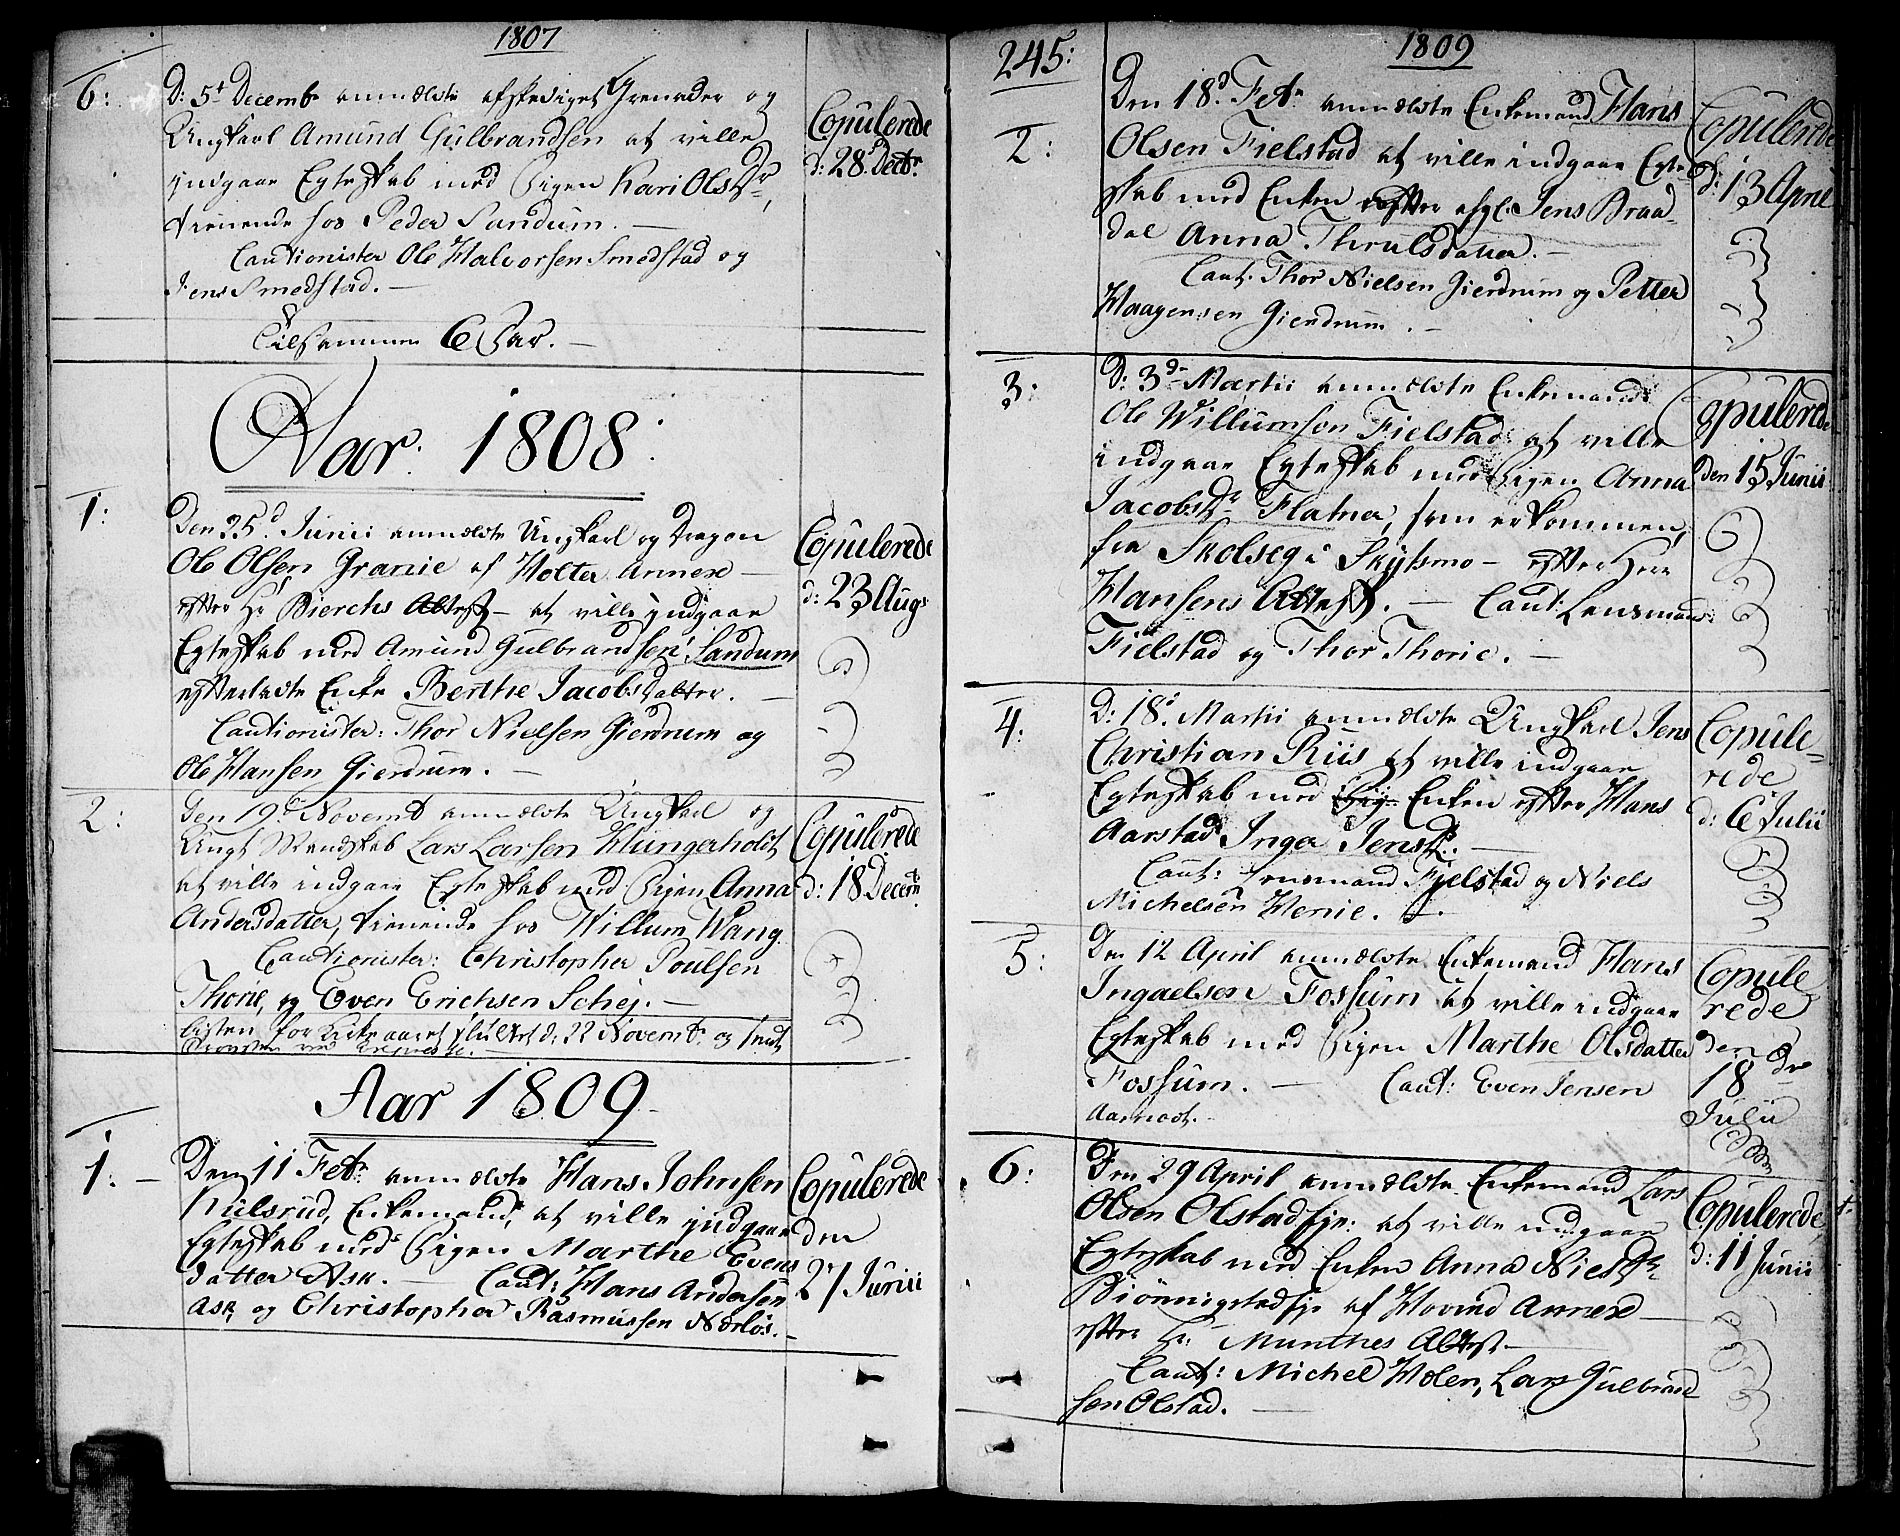 1807
6:
D: 5t Decembr anmeldte afskediget Grenader og
Ungkarl Amund Gulbrandsen at ville
indgaae Egteskab med Pigen Kari OlsDr,
tienende hos Peder Sandum. —
Cautionister Ole Halvorsen Smedstad og
Jens Smedstad. —
Copulerede
d: 28 Decbr.
Tilsammen 6 Par. —
Aar: 1808:
1:
Den 25d Junii anmeldte Ungkarl og Dragon
Ole Olsen Granie af Holter Annex —
efter Hr Bierchs Attest — at ville indgaae
Egteskab med Amund Gulbrandsen Sandum
efterladte Enke Berthe Jacobsdatter. —
Cautionister: Thor Nielsen Gierdrum og
Ole Hansen Gierdrum. —
Copulerede
d: 23 Augs
2:
Den 19d Novembr anmeldte Ungkarl og
Ungt Mandskab Lars Larsen Klungerholdt
at ville indgaae Egteskab med Pigen Anna
Andersdatter, tienende hos Willum Wang.
Cautionister: Christopher Poulsen
Thorie, og Even Erichsen Schej. —
Listen for Kirkeaaret sluttet d: 22 Novembr og sendt
Copulerede
d: 18 Decembr
Aar 1809
1. —
Den 11 Febr. anmeldte Hans Johnsen
Nilsrud, Enkemand, at ville indgaae
Egteskab med Pigen Marthe Evens
datter Ask. — Caut: Hans Andersen
Ask og Christopher Rasmussen Nordløs. —
Copulerede
den
27 Junii
245:
1809
2:
Den 18d Febr. anmeldte Enkemand Hans
Olsen Fielstad at ville indgaae Egte-
skab med Enken efter afg: Jens Braa-
dal Anna Thrulsdatter. —
Caut: Thor Nielsen Gierdrum og Petter
Haagensen Gierdrum. —
Copulerede
d: 13 April
3:
D: 3d Martii anmeldte Enkemand
Ole Willumsen Fielstad at ville
indgaae Egteskab med Pigen Anna
JacobsDr Flatner, som er kommen
fra Skolseg i Skydsmo — efter Herr
Hansens Attest. — Caut: Lensmand
Fielstad og Thor Thorie. —
Copulerede
den 15 Junii
4:
D: 18d Martii anmeldte Ungkarl Jens
Christian Riis at ville indgaae
Egteskab med Enken efter Hans
Aarstad Inger JensD. —
Caut: Lensmand Fjelstad og Niels
Michelsen Henie. —
Copule-
rede
d: 6 Julii
5:
Den 12 April anmeldte Enkemand Hans
Ingaelsen Fossum at ville indgaae
Egteskab med Pigen Marthe Olsdatter
Fossum. — Caut: Even Jensen
Aasnødt. —
Copule
rede
den
18de
Julii
6:
Den 29 April anmeldte Enkemand Lars
Olsen Olstadeje: at ville indgaae
Egteskab med Enken Anna NielsDr
Biønnigstadeje af Hovind Annex —
efter Hr: Munthes Attest —
Caut: Michel Holen, Lars Gulbrand
sen Olstad. —
Copulerede
d: 11 Junii